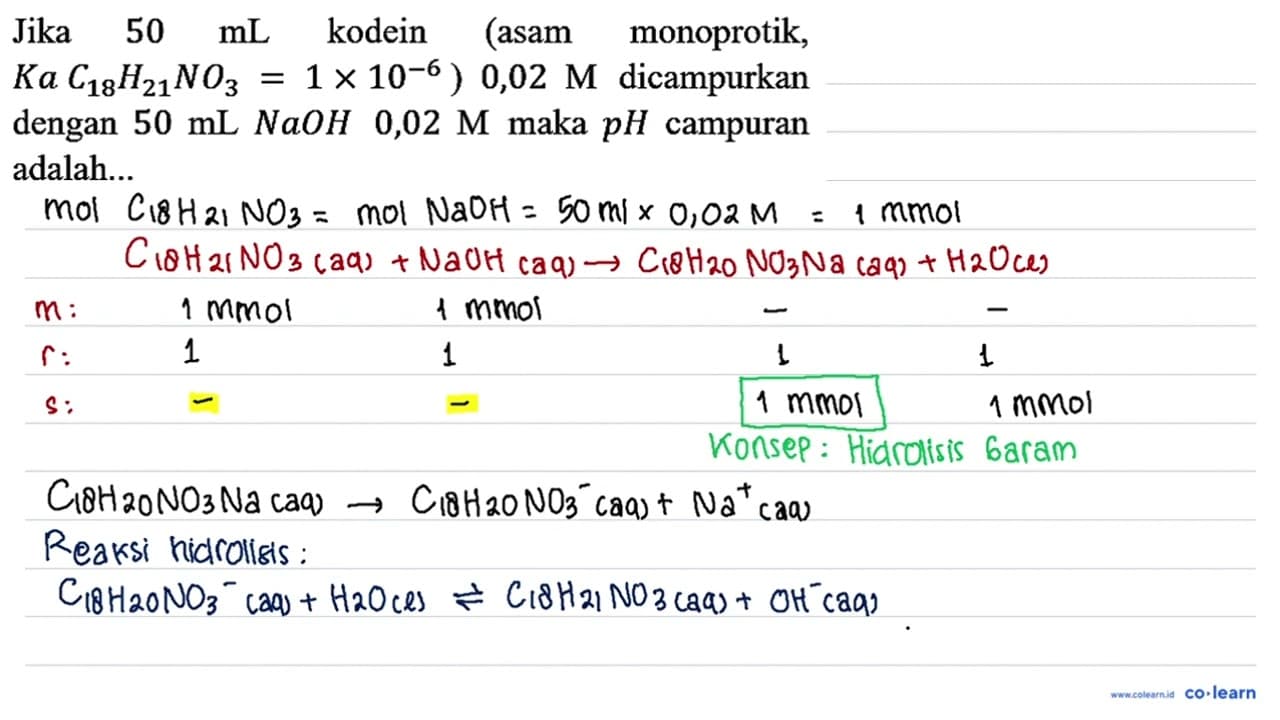 Jika 50 mL kodein (asam monoprotik,
Ka C₁₈H₂₁NO₃ = 1 × 10⁻⁶) 0,02 M dicampurkan
dengan 50 mL NaOH 0,02 M maka pH campuran
adalah...
mol C₁₈H₂₁NO₃ = mol NaOH = 50 ml × 0,02 M = 1 mmol
C₁₈H₂₁NO₃ (aq) + NaOH (aq) → C₁₈H₂₀NO₃Na (aq) + H₂O(l)
m: 1 mmol 1 mmol – –
r: 1 1 1 1
s: – – 1 mmol 1 mmol
Konsep: Hidrolisis Garam
C₁₈H₂₀NO₃Na (aq) → C₁₈H₂₀NO₃⁻ (aq) + Na⁺ (aq)
Reaksi hidrolisis:
C₁₈H₂₀NO₃⁻ (aq) + H₂O(l) ⇌ C₁₈H₂₁NO₃(aq) + OH⁻(aq)
www.colearn.id co·learn